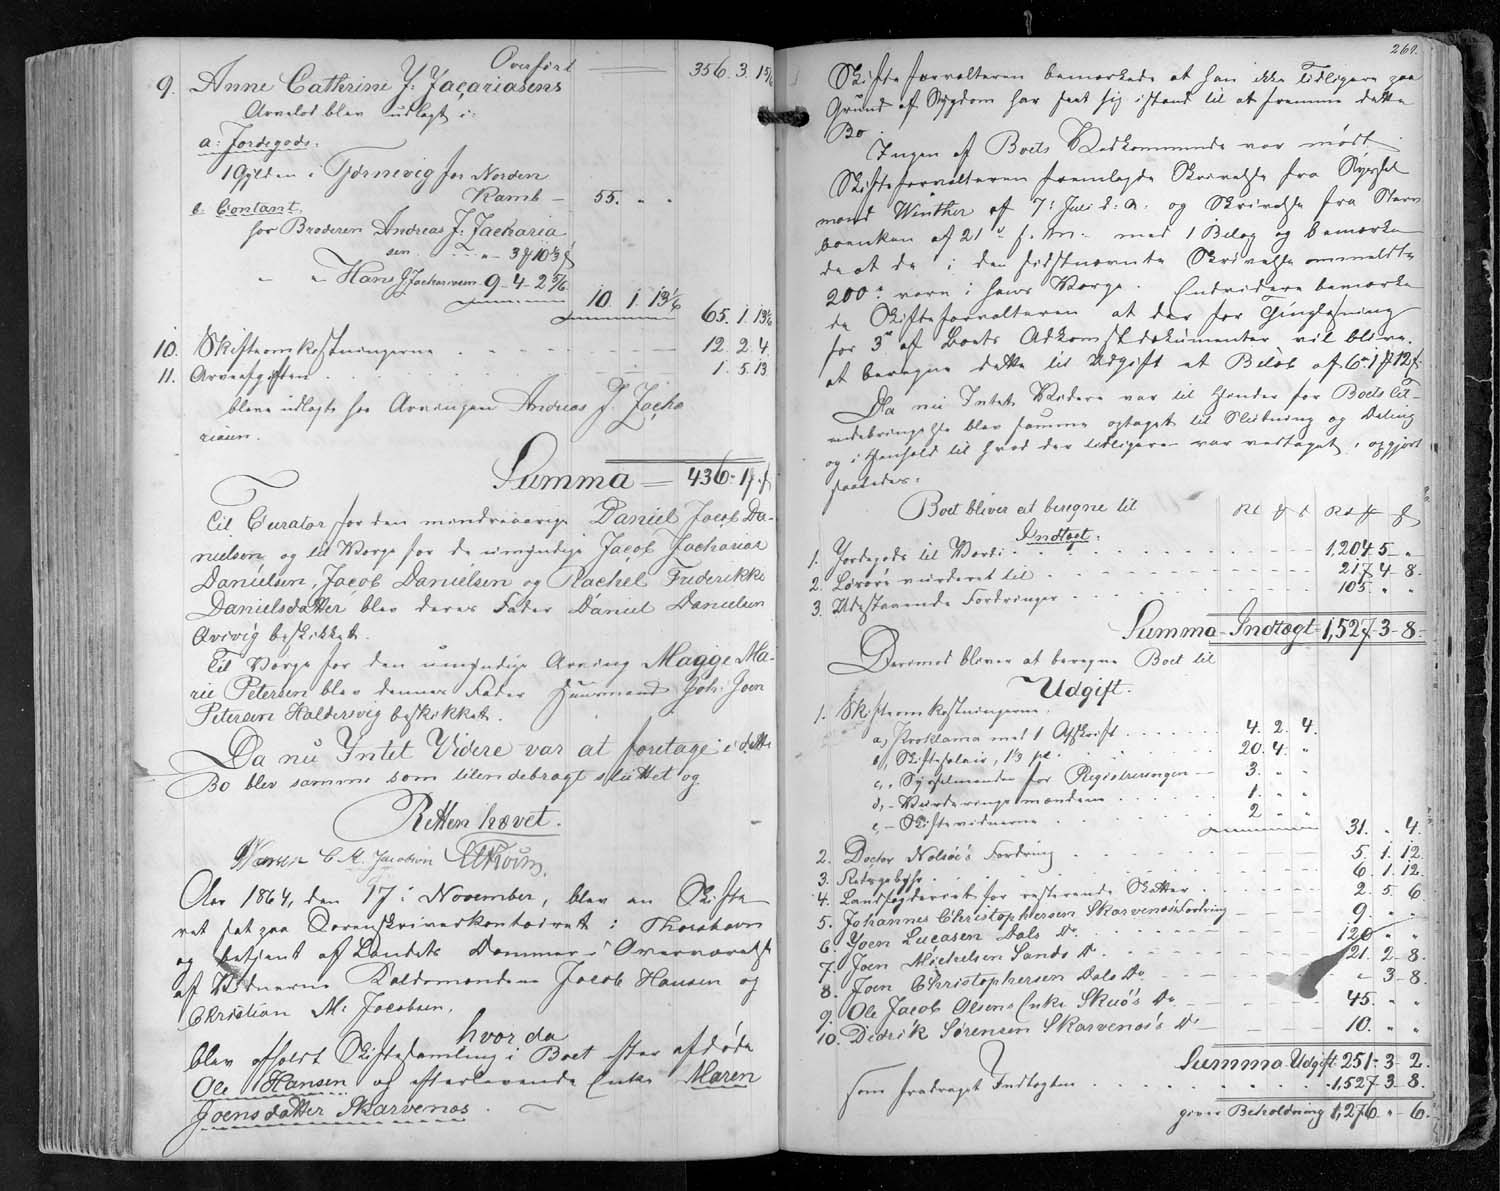 Overført 356. 3. 15
9. Anne Cathrine J. Jacariasens
Arvelod blev udlagt i:
a: Jordegods.
1 Gylden i Tjørnevig for Norden
Kamb — 55. " "
b. Contant.
hos Broderen Andreas J. Zacharia
sen 3 10 3
" " Hans J Zachariasen 9-4-2 5/6
10 1 13 1/6
65. 1. 13 1/6
10. Skifteomkostningerne 12. 2. 4.
11. Arveafgiften 1. 5. 13
bleve udlagte hos Arvingen Andreas J. Zacha
riasen.
Summa — 436-1
Til Curator for den mindreaarige Daniel Jacob Da-
nielsen og til Værge for de umyndige Jacob Zacharias
Danielsen, Jacob Danielsen og Rachel Frederikke
Danielsdatter blev deres Fader Daniel Danielsen
beskikket.
Til Værge for den umyndige Arving Magge Ma-
rie Petersen blev dennes Fader Huusmand Joh: Joen
Petersen Haldersvig beskikket.
Da nu Intet Videre var at foretage i dette
Bo blev samme som tilendebragt sluttet og
Retten hævet.
C. M. Jacobsen
Aar 1864, den 17 i November, blev en Skifte
ret sat paa Sorenskriverkontoiret i Thorshavn
og betjent af Landets Dommer i Overværelse
af Vidnerne Jacob Hansen og
Christian M. Jacobsen,
hvor da
blev afholdt Skiftesamling i Boet efter afdøde
Ole Hansen og efterlevende Enke Maren
Joensdatter Skarvenæs.
269.
Skifteforvalteren bemærkede at han ikke tidligere paa
Grund af Sygdom har seet sig istand til at fremme dette
Bo.
Ingen af Boets Vedkommende var mødt.
Skifteforvalteren fremlagde Skrivelse fra Syssel
mand Winther af 7: Juli d: A. og Skrivelse fra
af 21 f. M. med 1 Bilag og bemærke
de at de i den sidstnævnte Skrivelse ommeldte
200 vare i hans Værge. Endvidere bemærke
de Skifteforvalteren at der for Tinglæsning
for 3 af Boets Adkomstdokumenter vil blive
at beregne dette til Udgift et Beløb af 6 1 12
Da nu Intet Videre var til Hinder for Boets til
endebringelse blev samme optaget til Slutning og Deling
og i Henhold til hvad der tidligere var vedtaget, opgjort
saaledes:
Boet bliver at beregne til
Indtægt:
1. Jordegods til Værdi 1,204 5 "
2. Løsøre vurderet til 217 4 8.
3. Udestaaende Fordringer 105 " "
Summa Indtægt 1,527-3-8
Derimod bliver at beregne Boet til
Udgift.
1. Skifteomkostningerne
a, Proklama med 1 Afskrift 4. 2. 4.
b, Skiftesalair, 1 1/3 pC. 20. 4. "
c, Sysselmanden for Registreringen 3. " "
d, Vurderingsmændene 1. " "
e, Skiftevidnerne 2 " "
31. " 4.
2. Doctor Nolsøe's Fordring 5. 1. 12.
3. 6. 1. 12.
4. Landfogderiet for resterende Skatter 2 5 6
5. Johannes Christophersen Skarvenæs Fordring 9. " "
6. Joen Lucasen Dals Do 120 " "
7. Joen Michelsen Sands Do 21 2 8.
8. Joen Christophersen Dals Do " 3-8.
9. Ole Jacob Olsens Enke Skuø's Do 45. " "
10. Didrik Sørensen Skarvenæs's Do 10. " "
Summa Udgift 251-3-2.
som fradraget Indtægten 1,527 3-8.
giver Beholdning 1,276 " 6.